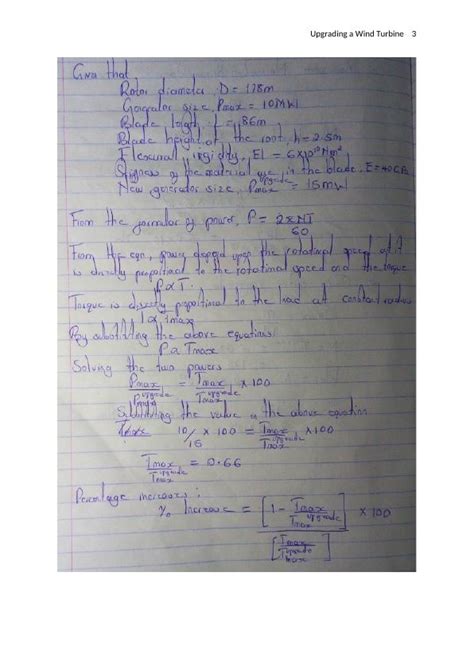 Upgrading a Wind Turbine 3
Given that
Rotor diameter D = 178m
Generator size, Pmax = 10MW
Blade length, L = 86m
Blade height at the root, h = 2.5m
Flexural rigidity, EI = 6x10¹⁰Nm²
of the material use in the blade, E = 40
New generator size, Pmax upgrade = 15MW
From the formular of power, P = 2πNT/60
From the eqn, power depend upon the rotational speed
is directly proportional to the rotational speed and the torque
P α T
Torque is directly proportional to the load at constant radius
T α Tmax
By substituting the above equations
P α Tmax
Solving the two powers
Pmax / Pmax upgrade = Tmax / Tmax upgrade x 100
Substituting the value in the above equation
10/15 x 100 = Tmax / Tmax upgrade x100
Tmax / Tmax upgrade = 0.66
Percentage increase:
% Increase = [1 - Tmax / Tmax upgrade] / [Tmax / Tmax upgrade] x 100